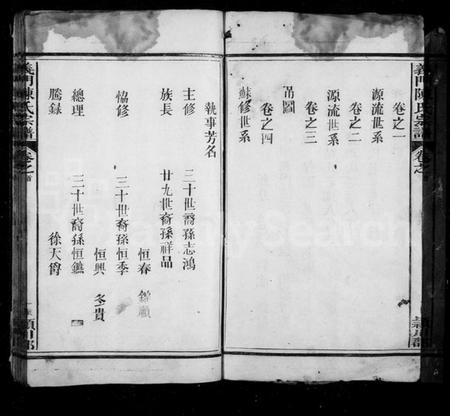 義門陳氏宗譜
卷之一
源流世系
卷之二
源流世系
卷之三
吊圖
卷之四
蘇修世系
執事芳名
主修 三十世裔孫志鴻
族長 廿九世裔孫祥品
恒春
協修 三十世裔孫恒季
恒興 冬貴
總理 三十世裔孫恒鑑
謄錄 徐天爵
義門陳氏宗譜
卷之首
潁川郡